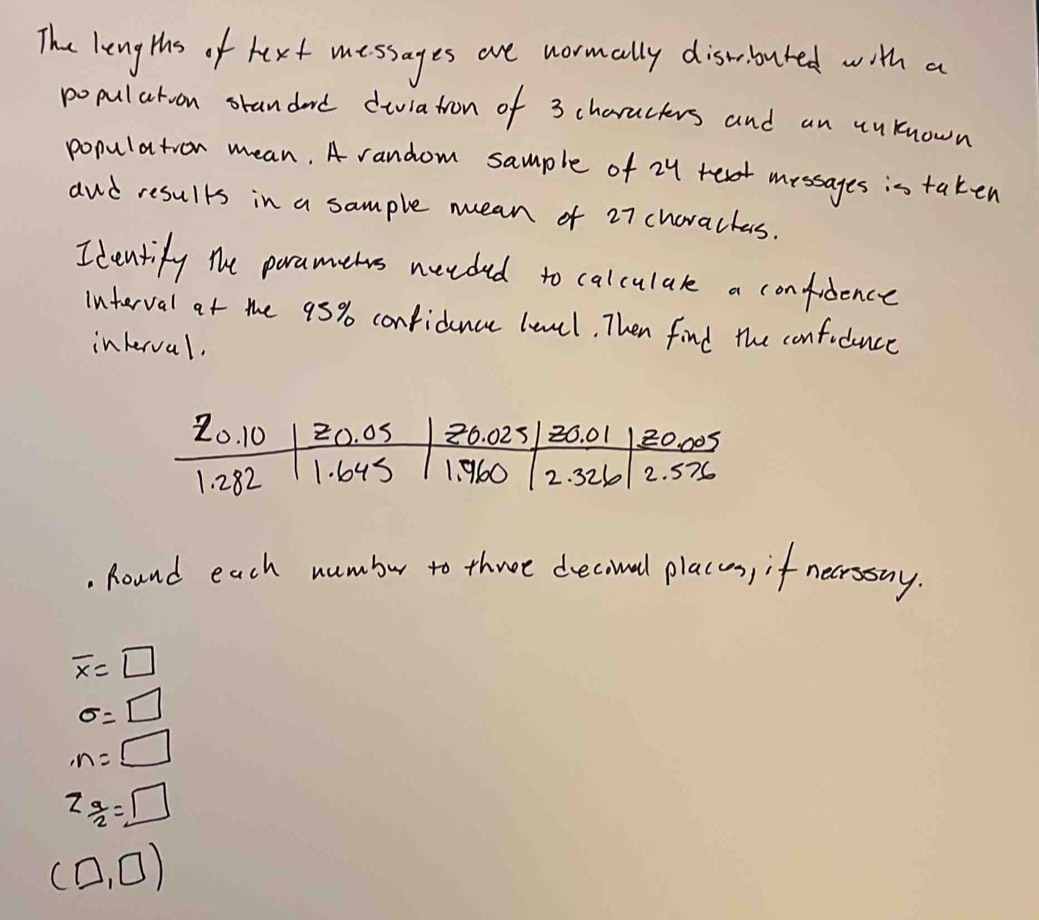 The lengths of text messages are normally distributed with a
population standard deviation of 3 characters and an unknown
population mean. A random sample of 24 text messages is taken
and results in a sample mean of 27 characters.
Identify the parameters needed to calculate a confidence
interval at the 95% confidence level. Then find the confidence
interval.
z0.10 | z0.05 | z0.025 | z0.01 | z0.005
1.282 | 1.645 | 1.960 | 2.326 | 2.576
. Round each number to three decimal places, if necessary.
x̄ = □
σ = □
.n = □
z a/2 = □
(□, □)